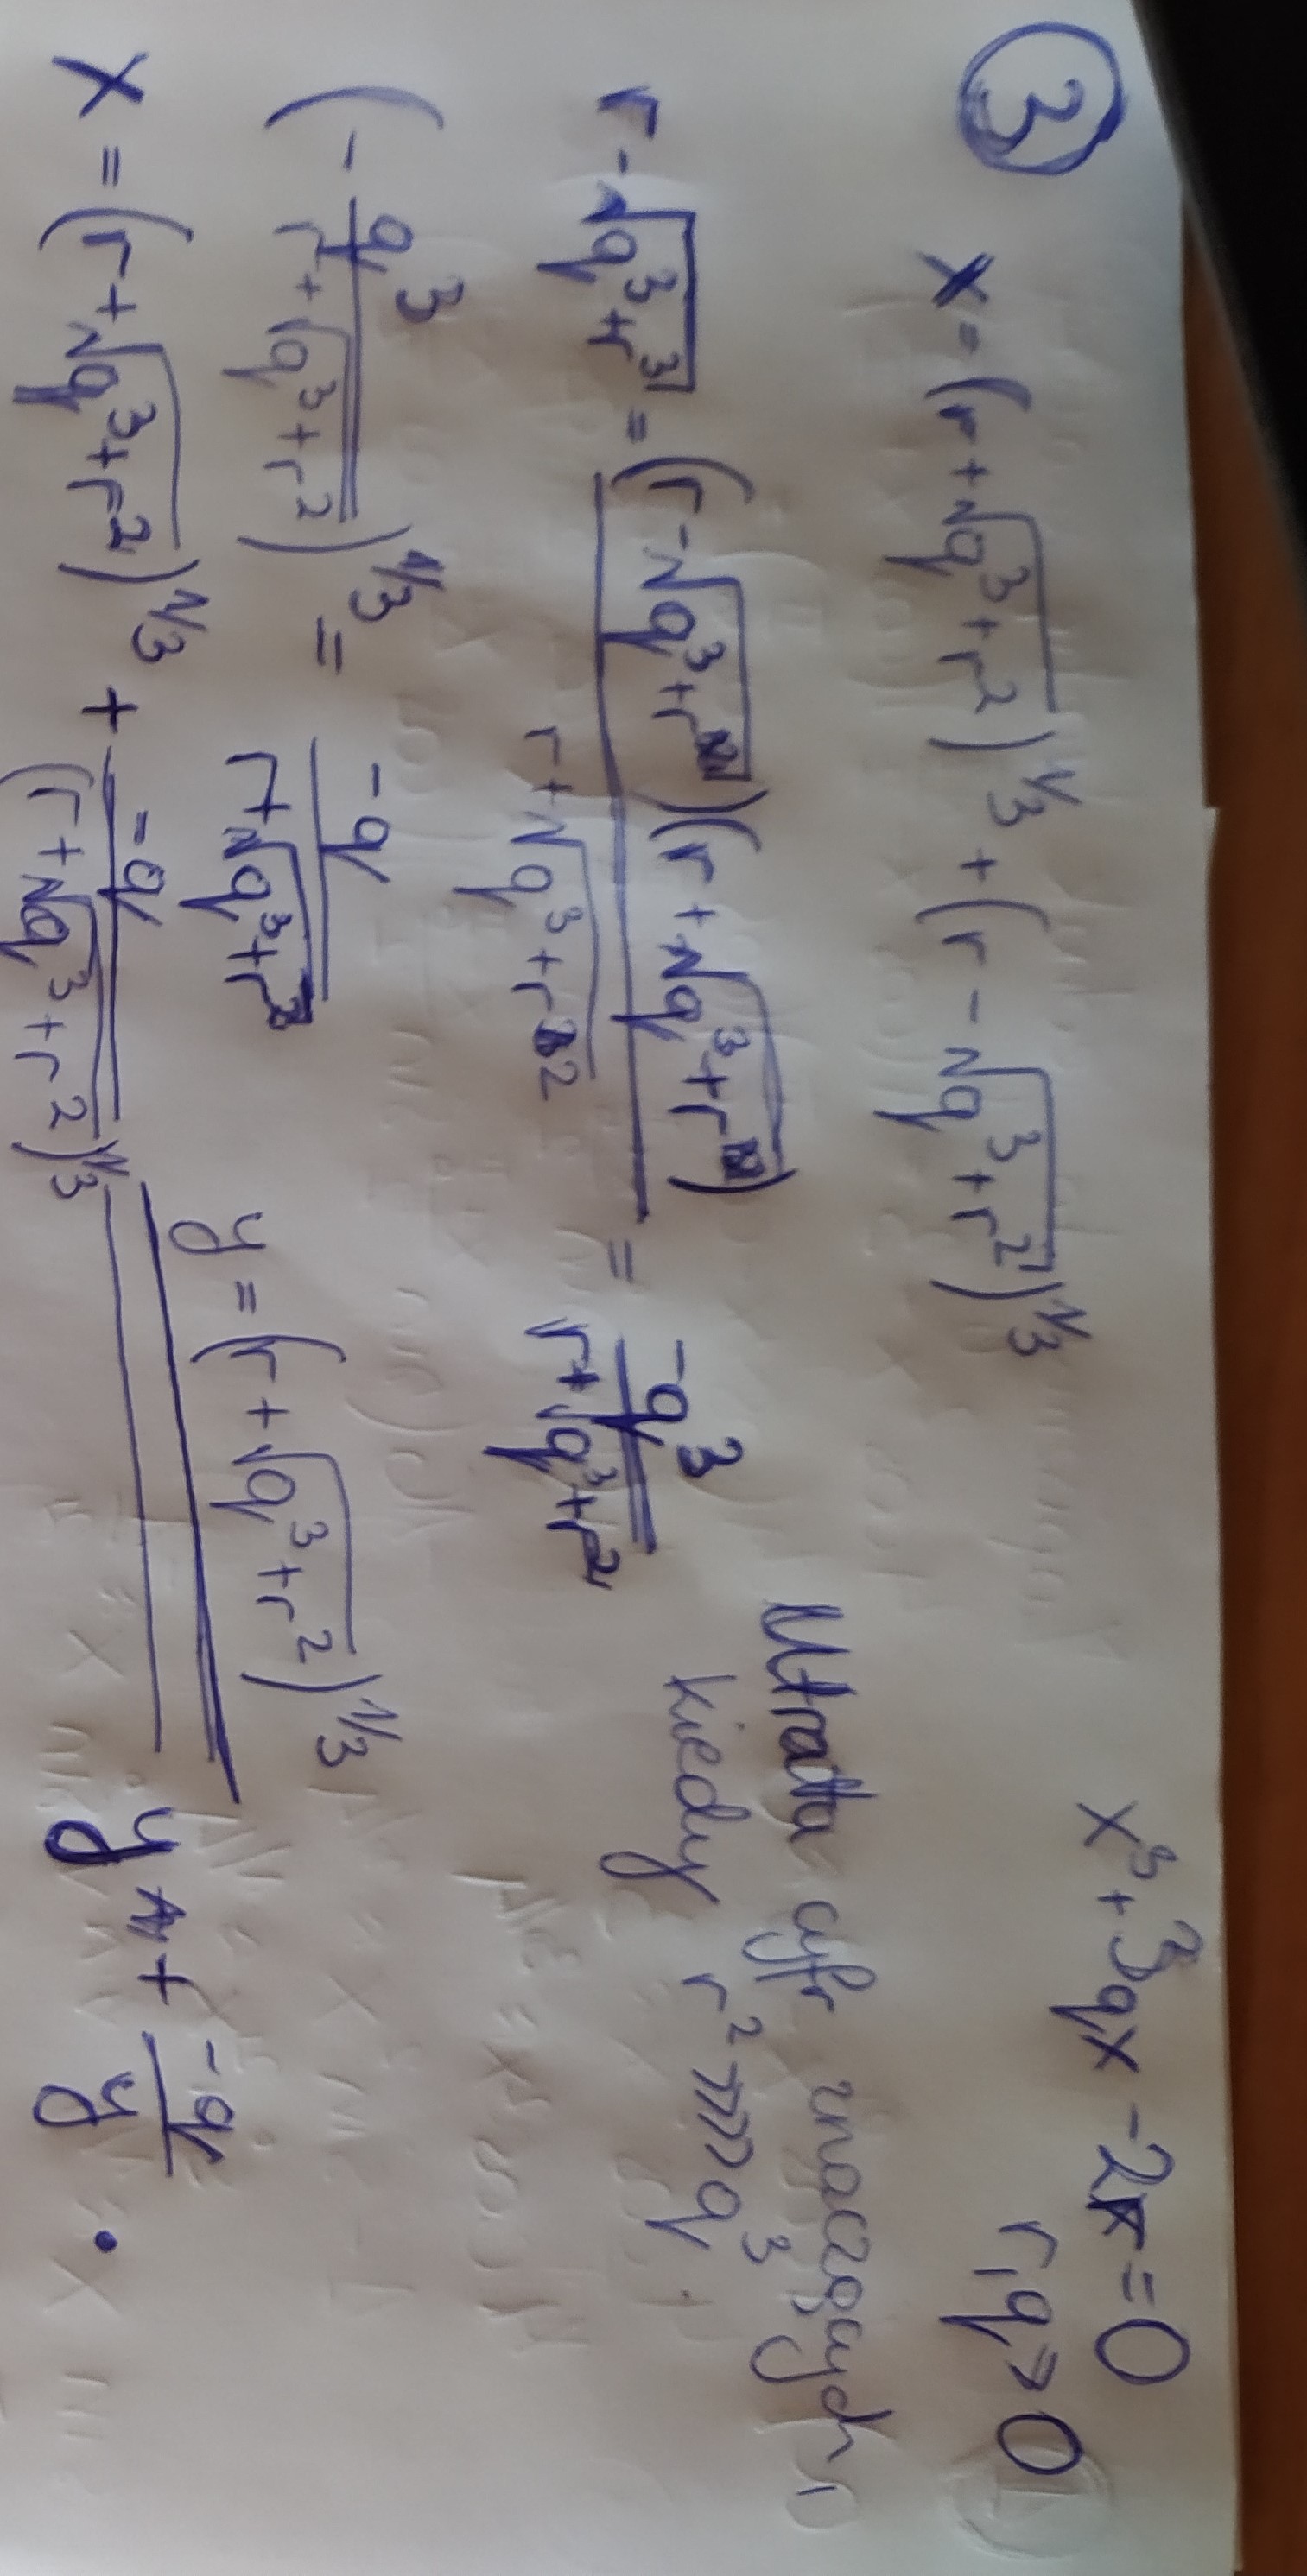 ③
x³+3qx-2r=0
r,q>0
x=(r+√(q³+r²))^1/3+(r-√(q³+r²))^1/3
Utrata cyfr znaczących,
kiedy r²>>>>q³.
r-√(q³+r³)=(r-√(q³+r²))(r+√(q³+r²))/(r+√(q³+r²))=-q³/(r+√(q³+r²))
(-q³/(r+√(q³+r²)))^1/3=-q/(r+√(q³+r²))
y=(r+√(q³+r²))^1/3
x=(r+√(q³+r²))^1/3+-q/(r+√(q³+r²))^1/3
y+-q/y.